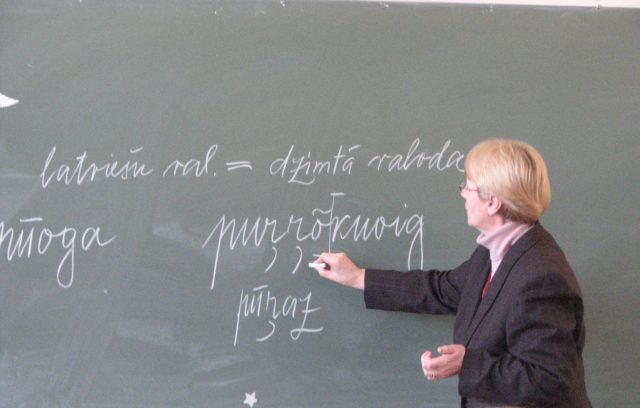 latviešu val. = dzimtā valoda
puŗŗõkuoig
pūŗaz